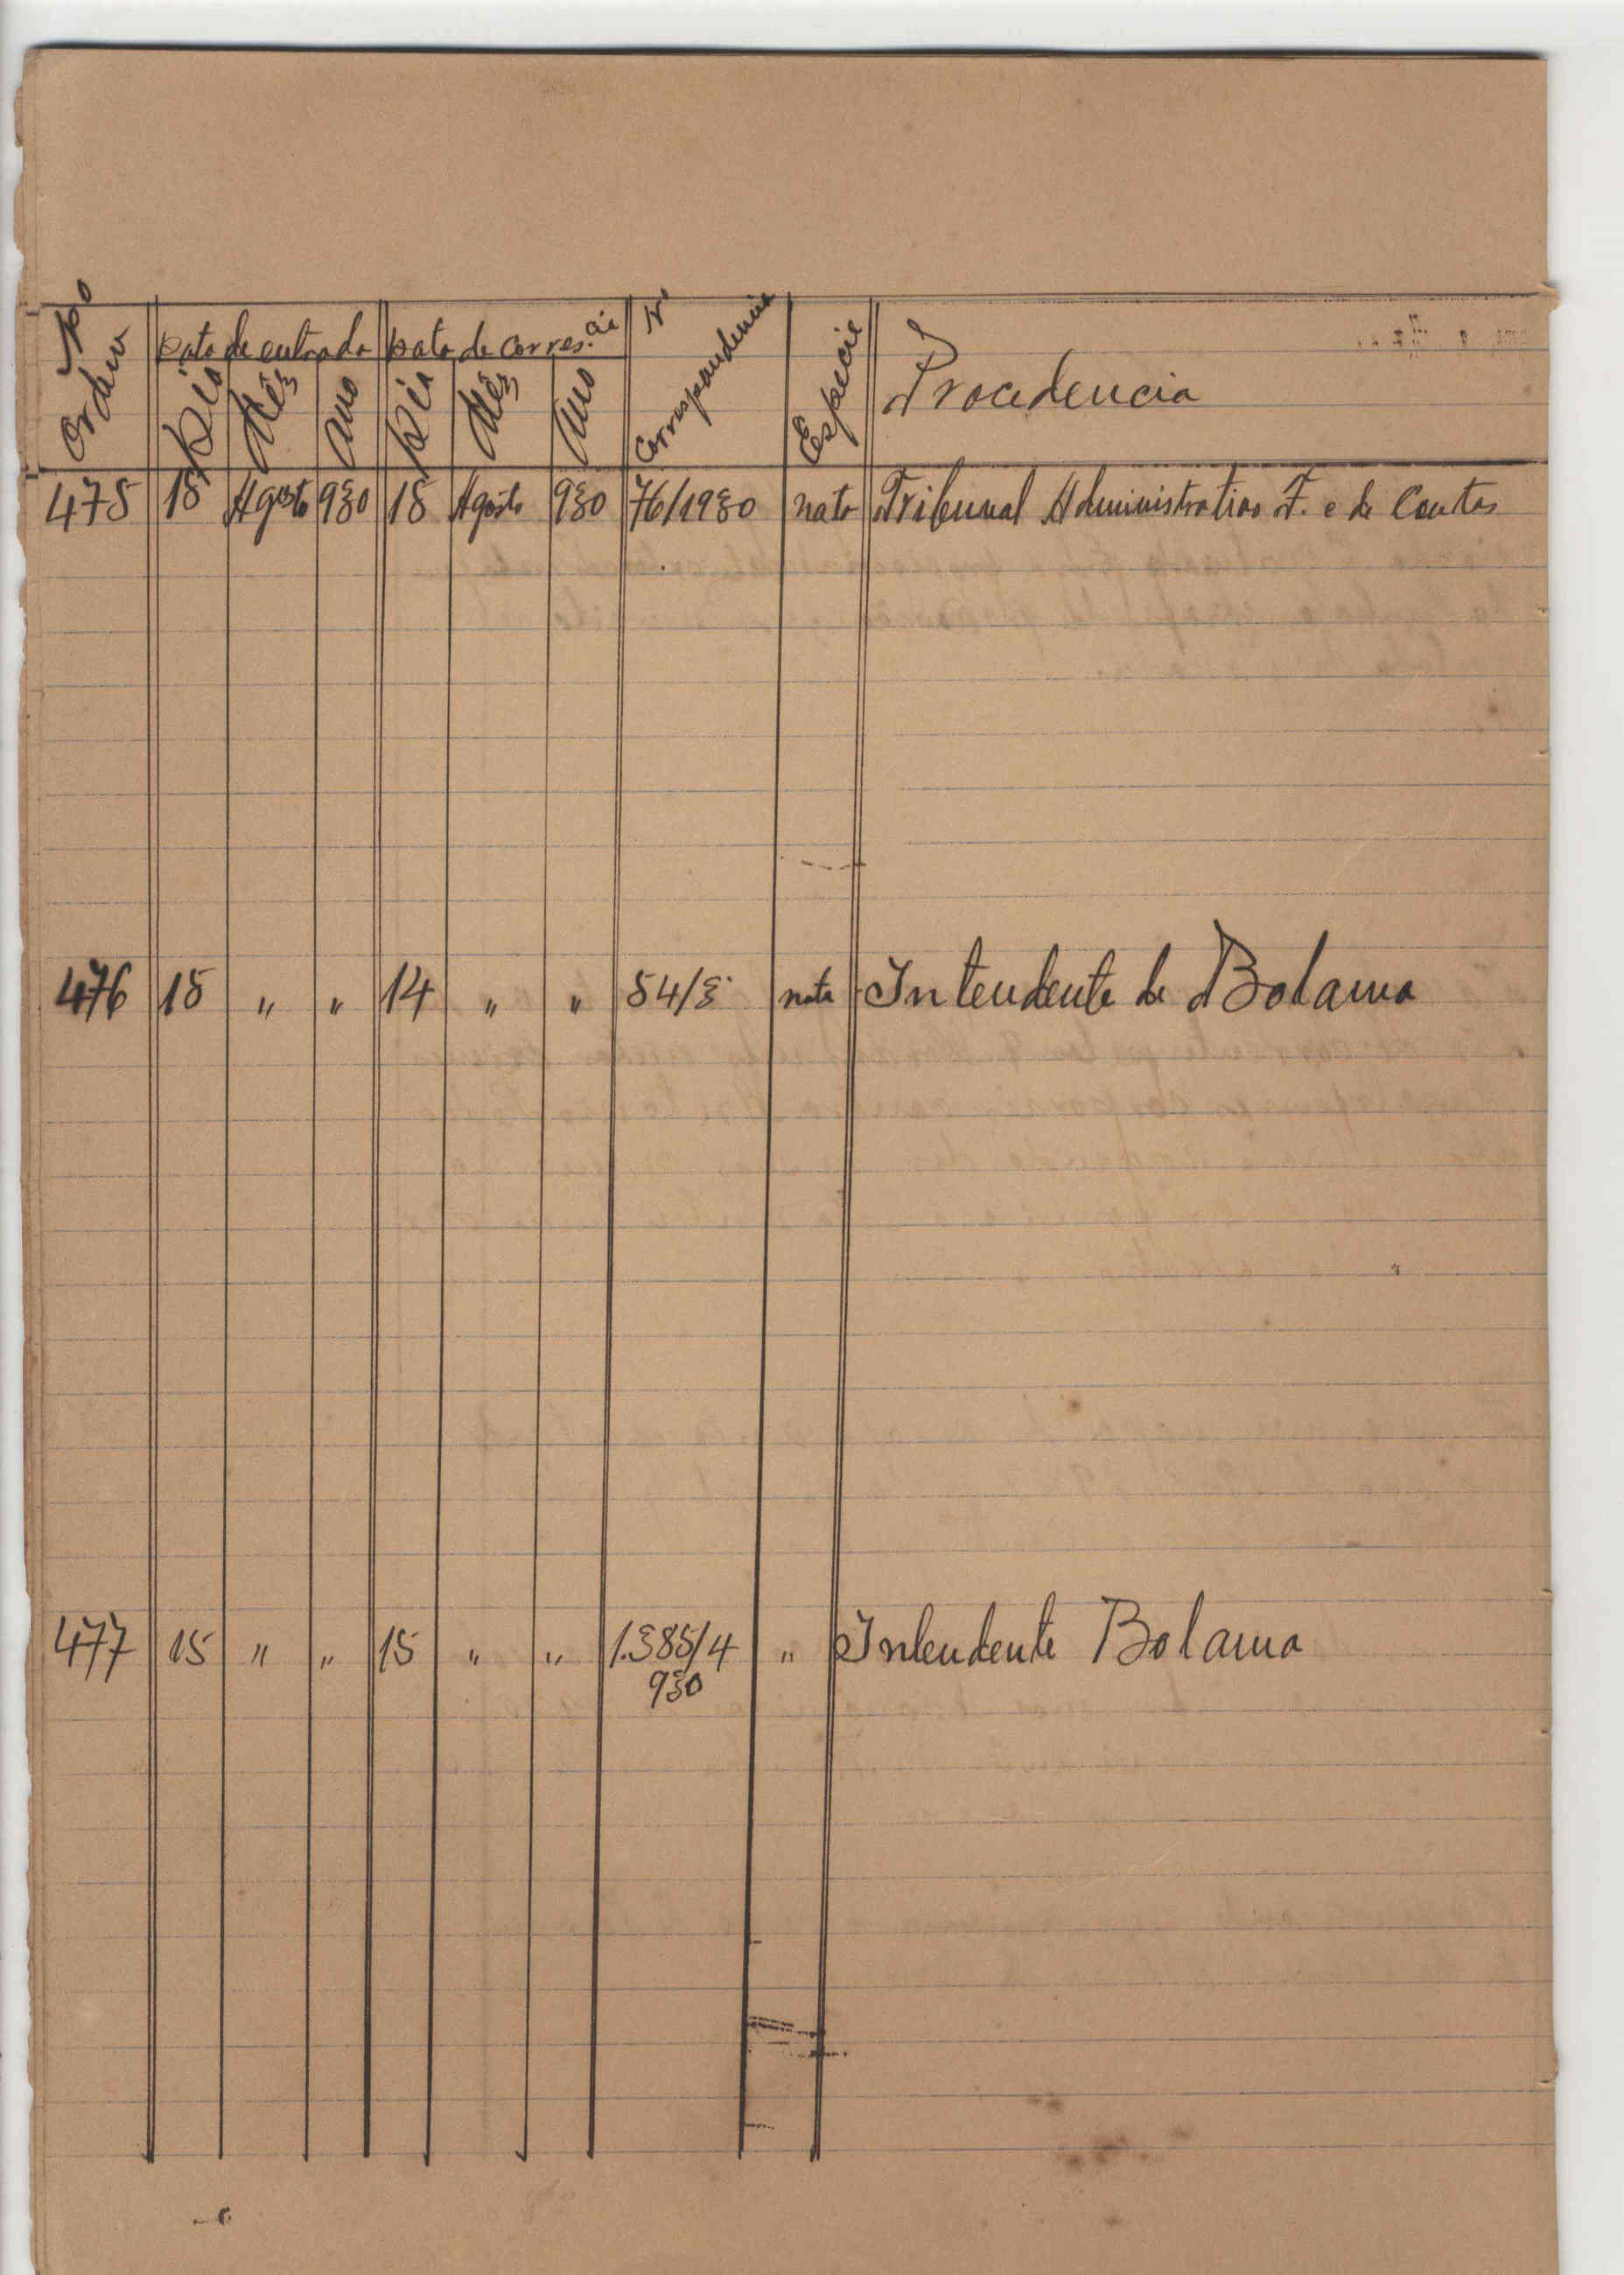 Nº Ordem Data de entrada Data de corres.ci Nº Correspondencia Especie Procedencia
Dia Mês Ano Dia Mês Ano
475 15 Agosto 930 15 Agosto 930 76/1930 nota Tribunal Administrativo F. e de Contas
476 15 " " 14 " " 54/3 nota Intendente de Bolama
477 15 " " 15 " " 1.385/4 " Intendente Bolama
930